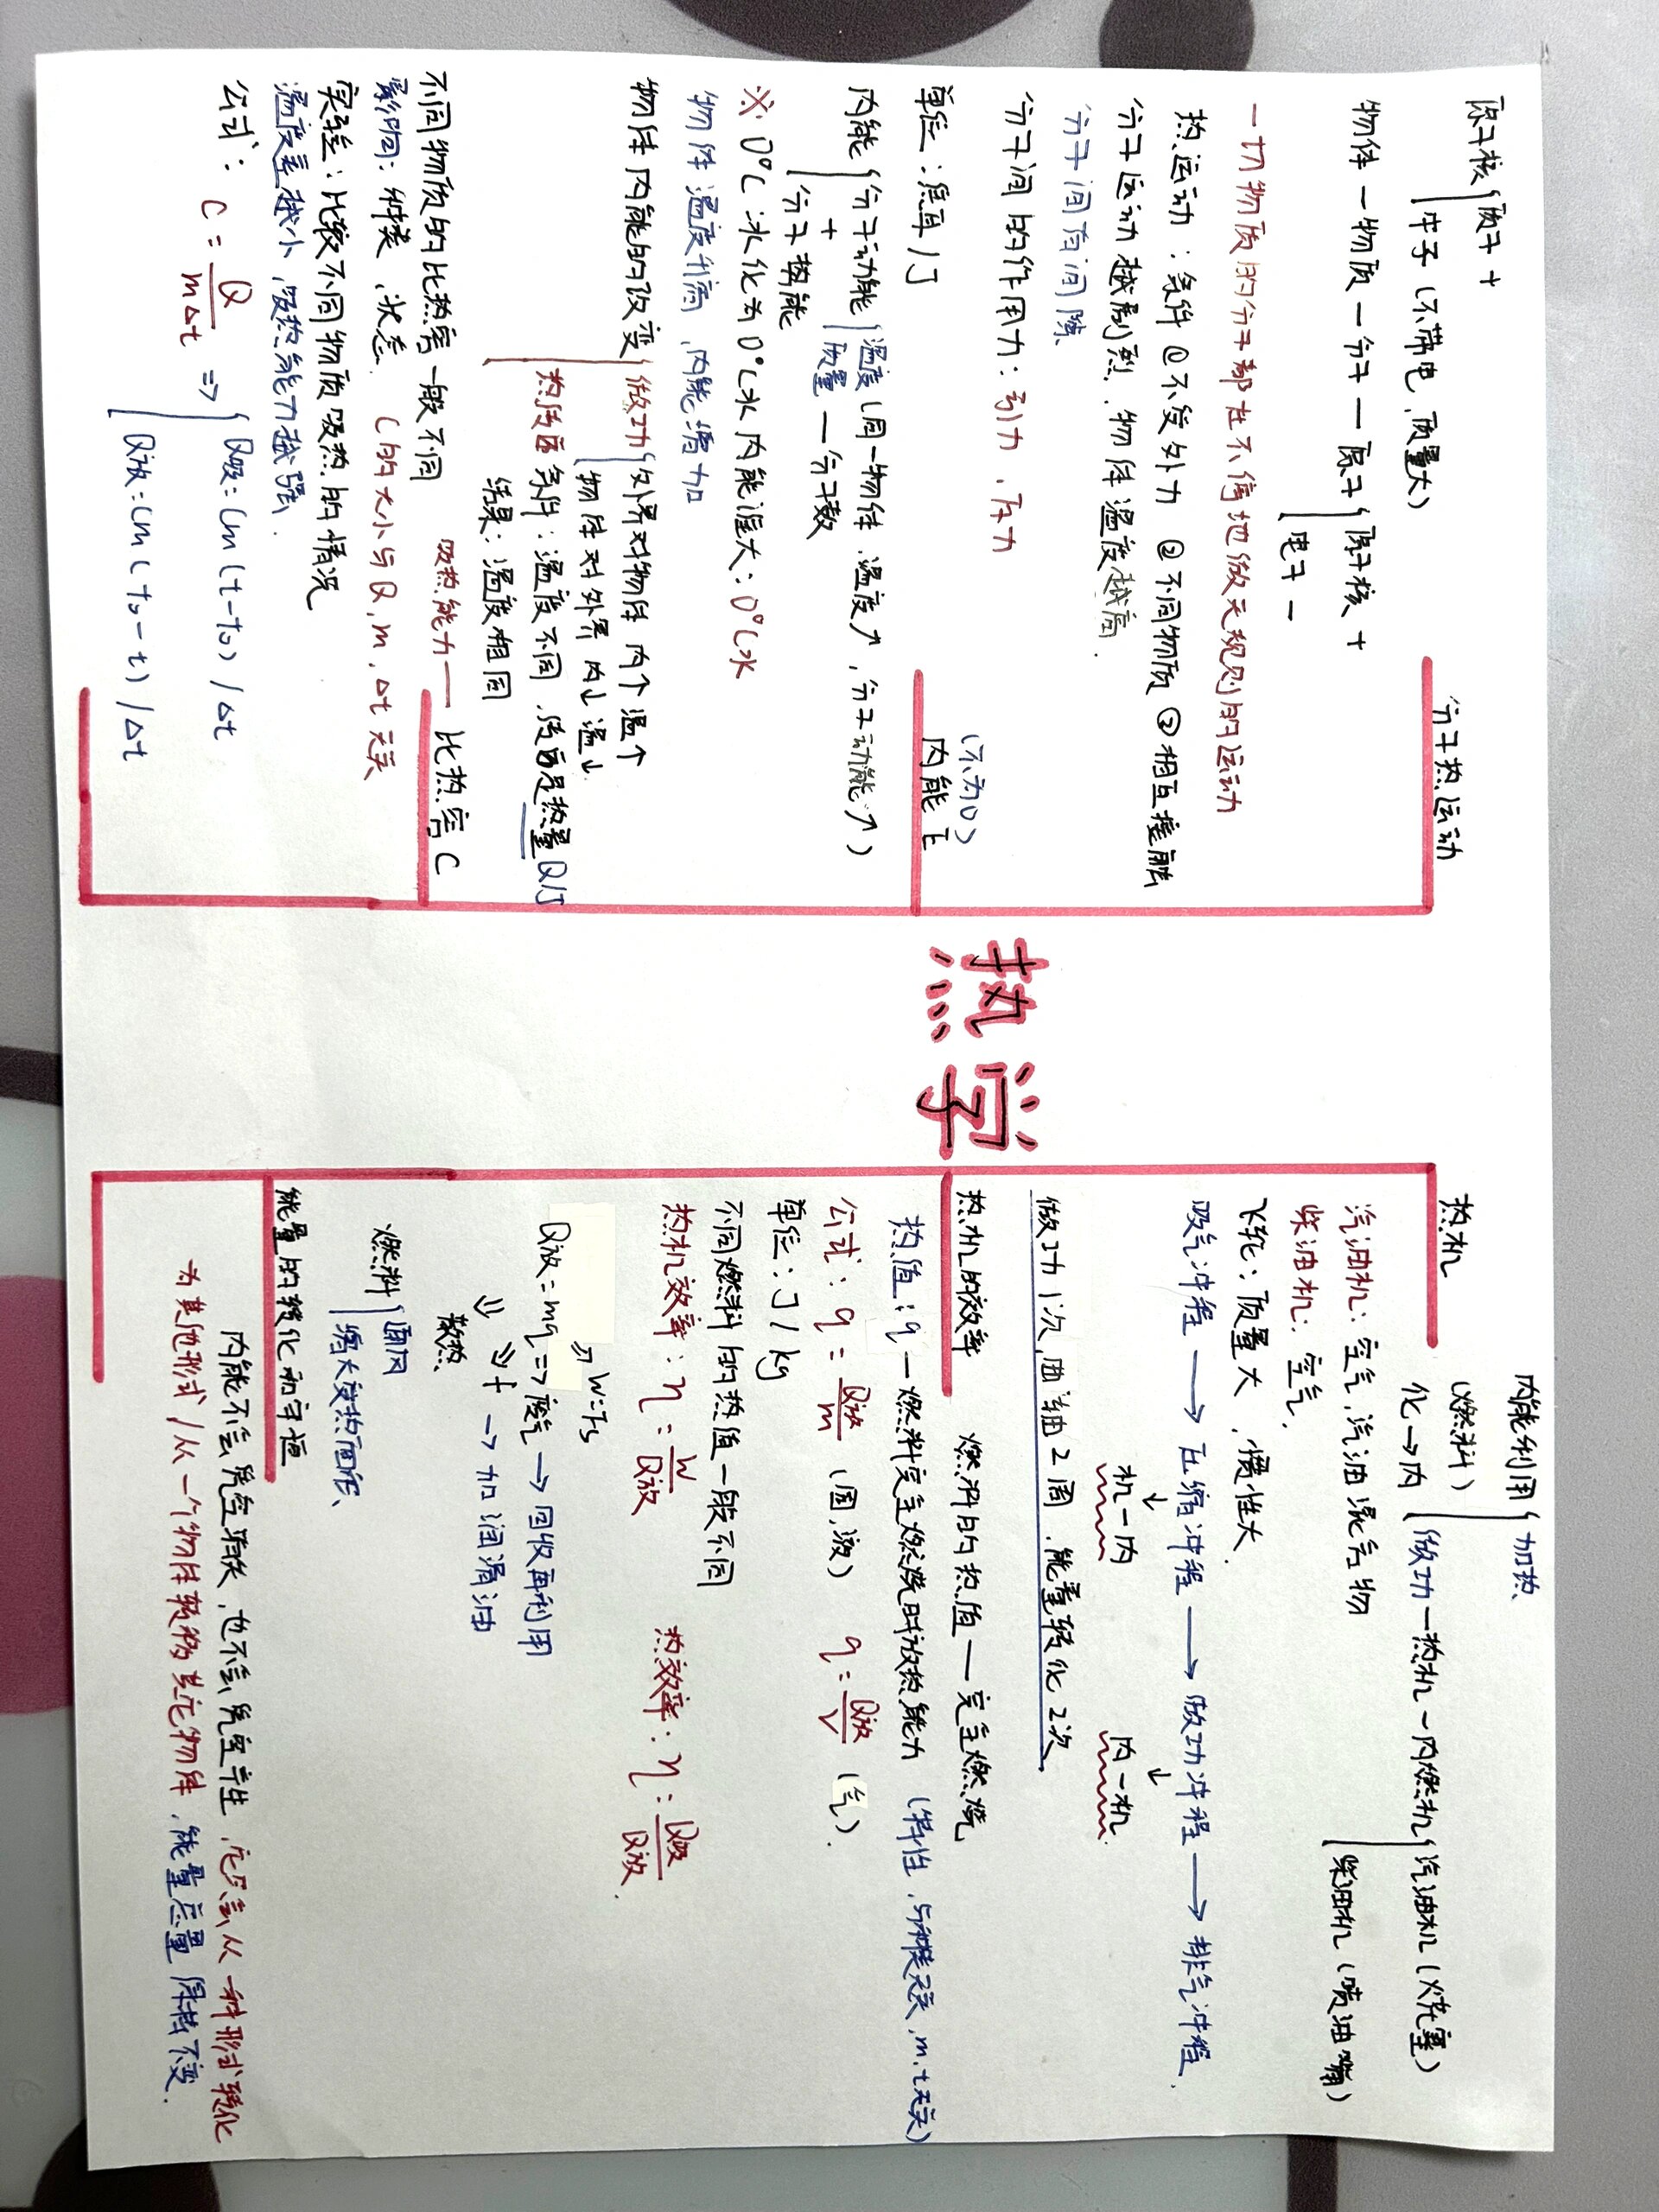 热学
分子热运动
原子核 质子 +
中子（不带电，质量大）
物体—物质—分子—原子 原子核 +
电子 -
一切物质的分子都在不停地做无规则的运动
热运动：条件 ①不受外力 ②不同物质 ③相互接触
分子运动越剧烈，物体温度越高.
分子间有间隙
分子间的作用力：引力，斥力
（不为0）
内能 E
单位：焦耳/J
内能 分子动能 温度（同一物体 温度↑，分子动能↑）
+ 质量—分子数
分子势能
※ 0℃冰化为0℃水内能谁大：0℃水
物体温度升高，内能增加
物体内能的改变 做功 外界对物体 内↑温↑
物体对外界 内↓温↓
热传递 条件：温度不同，传递是热量Q/J
结果：温度相同
吸热能力— 比热容C
不同物质的比热容一般不同
影响：种类，状态. C的大小与Q，m，Δt无关
实验：比较不同物质吸热的情况
温度差越小，吸热能力越强.
公式：C = Q / mΔt ⇒ Q吸=cm（t-t₀）/Δt
Q放=cm（t₀-t）/Δt
热机
内能利用 加热
（燃料）
化→内 做功—热机—内燃机 汽油机（火花塞）
柴油机（喷油嘴）
汽油机：空气，汽油混合物
柴油机：空气.
飞轮：质量大，惯性大.
吸气冲程 → 压缩冲程 → 做功冲程 → 排气冲程.
↓ ↓
机—内 内—机.
做功1次，曲轴2周，能量转化2次
热机的效率 燃料的热值—完全燃烧
热值：q—燃料完全燃烧时放热能力（特性，与种类无关，m，t无关）
公式：q = Q放 / m （固，液） q = Q放 / V （气）.
单位：J/kg
不同燃料的热值一般不同
热机效率：η = W / Q放 热效率：η = Q吸 / Q放.
↗ W=Fs
Q放=mq ⇒ 废气 → 回收再利用
⇓ ⇘ f → 加润滑油
散热
燃料 通风
增大受热面积、
能量的转化和守恒
内能不会凭空消失，也不会凭空产生，它只会从一种形式转化
为其他形式/从一个物体转移其它物体，能量总量保持不变.